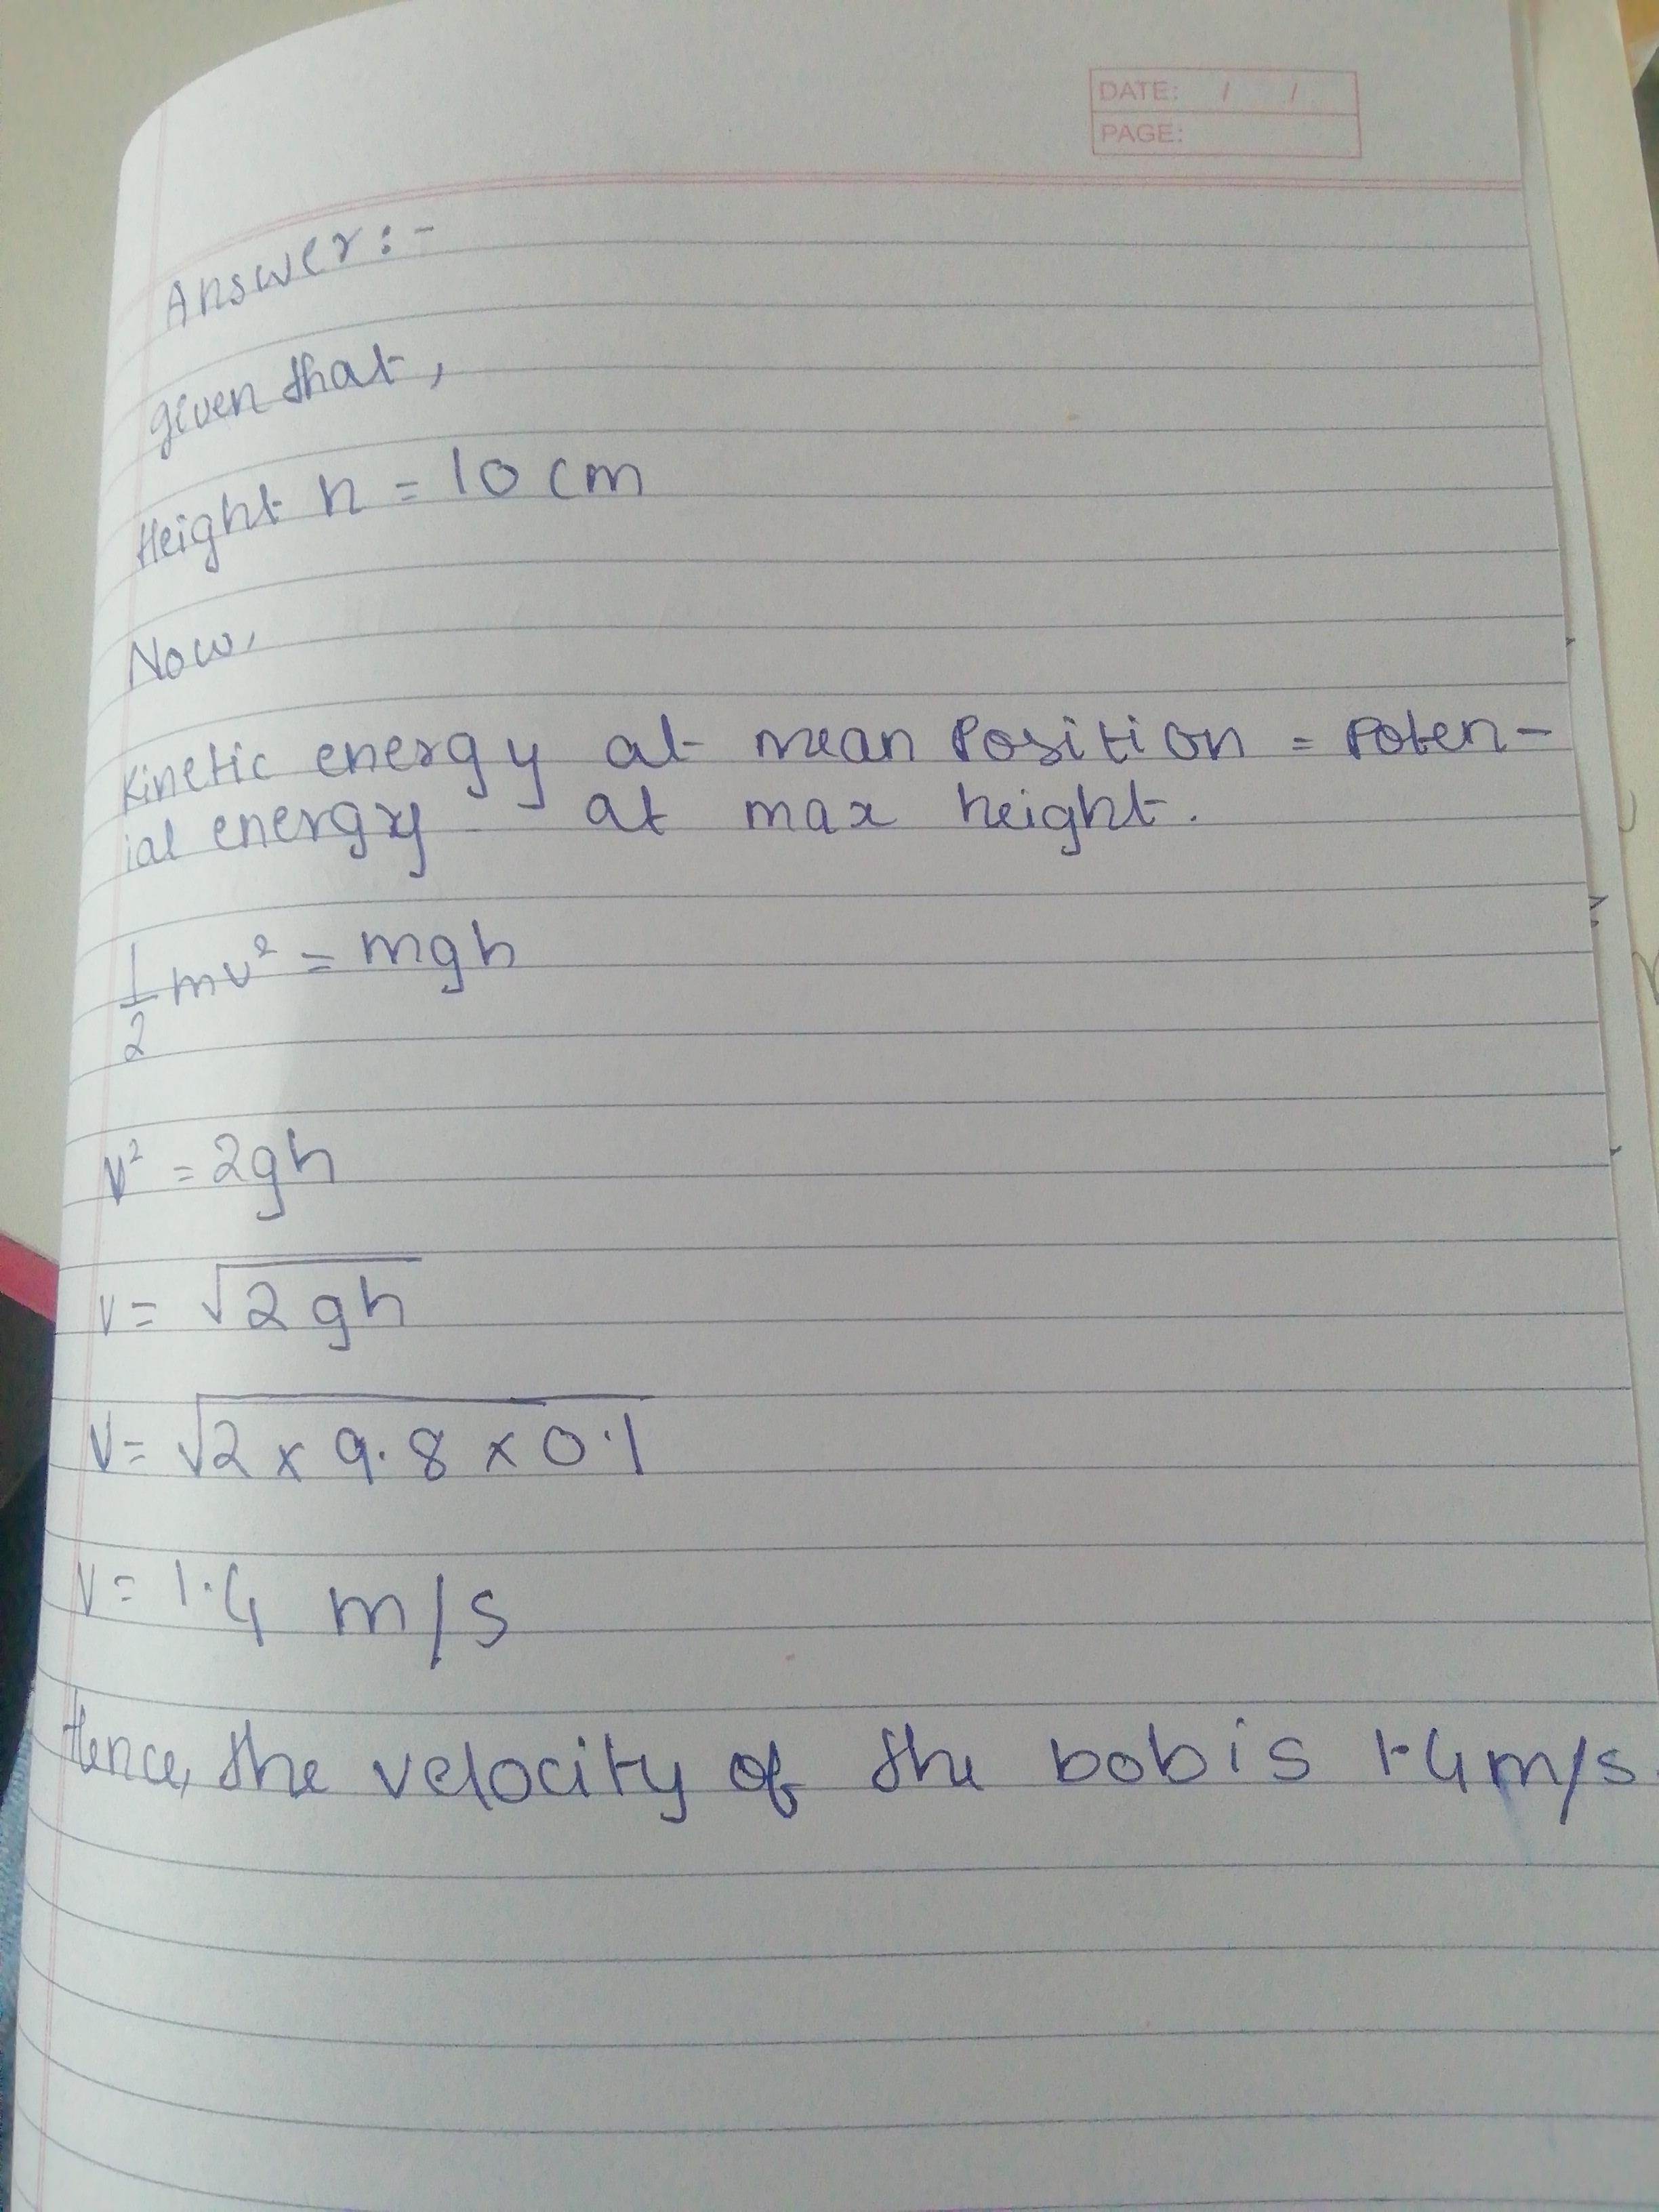 DATE: / /
PAGE:
Answer:-
given that,
Height h = 10 cm
Now,
Kinetic energy at mean Position = Poten-
ial energy at max height.
1/2 mv² = mgh
v² = 2gh
v = √2gh
V = √2 x 9.8 x 0.1
V = 1.4 m/s
Hence, the velocity of the bob is 1.4 m/s.